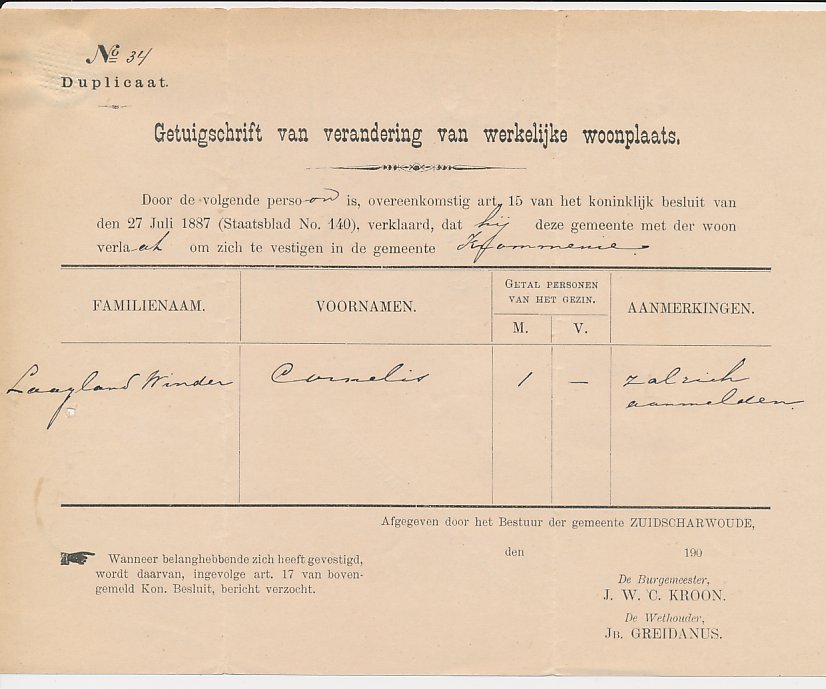 No 34
Duplicaat.
Getuigschrift van verandering van werkelijke woonplaats.
Door de volgende persoon is, overeenkomstig art. 15 van het koninklijk besluit van
den 27 Juli 1887 (Staatsblad No. 140), verklaard, dat hij deze gemeente met der woon
verlaat om zich te vestigen in de gemeente Krommenie.
FAMILIENAAM. VOORNAMEN. GETAL PERSONEN VAN HET GEZIN. AANMERKINGEN.
M. V.
Laagland Winder Cornelis 1 — zal zich
aanmelden.
Afgegeven door het Bestuur der gemeente ZUIDSCHARWOUDE,
den 190
Wanneer belanghebbende zich heeft gevestigd,
wordt daarvan, ingevolge art. 17 van boven-
gemeld Kon. Besluit, bericht verzocht.
De Burgemeester,
J. W. C. KROON.
De Wethouder,
JB. GREIDANUS.